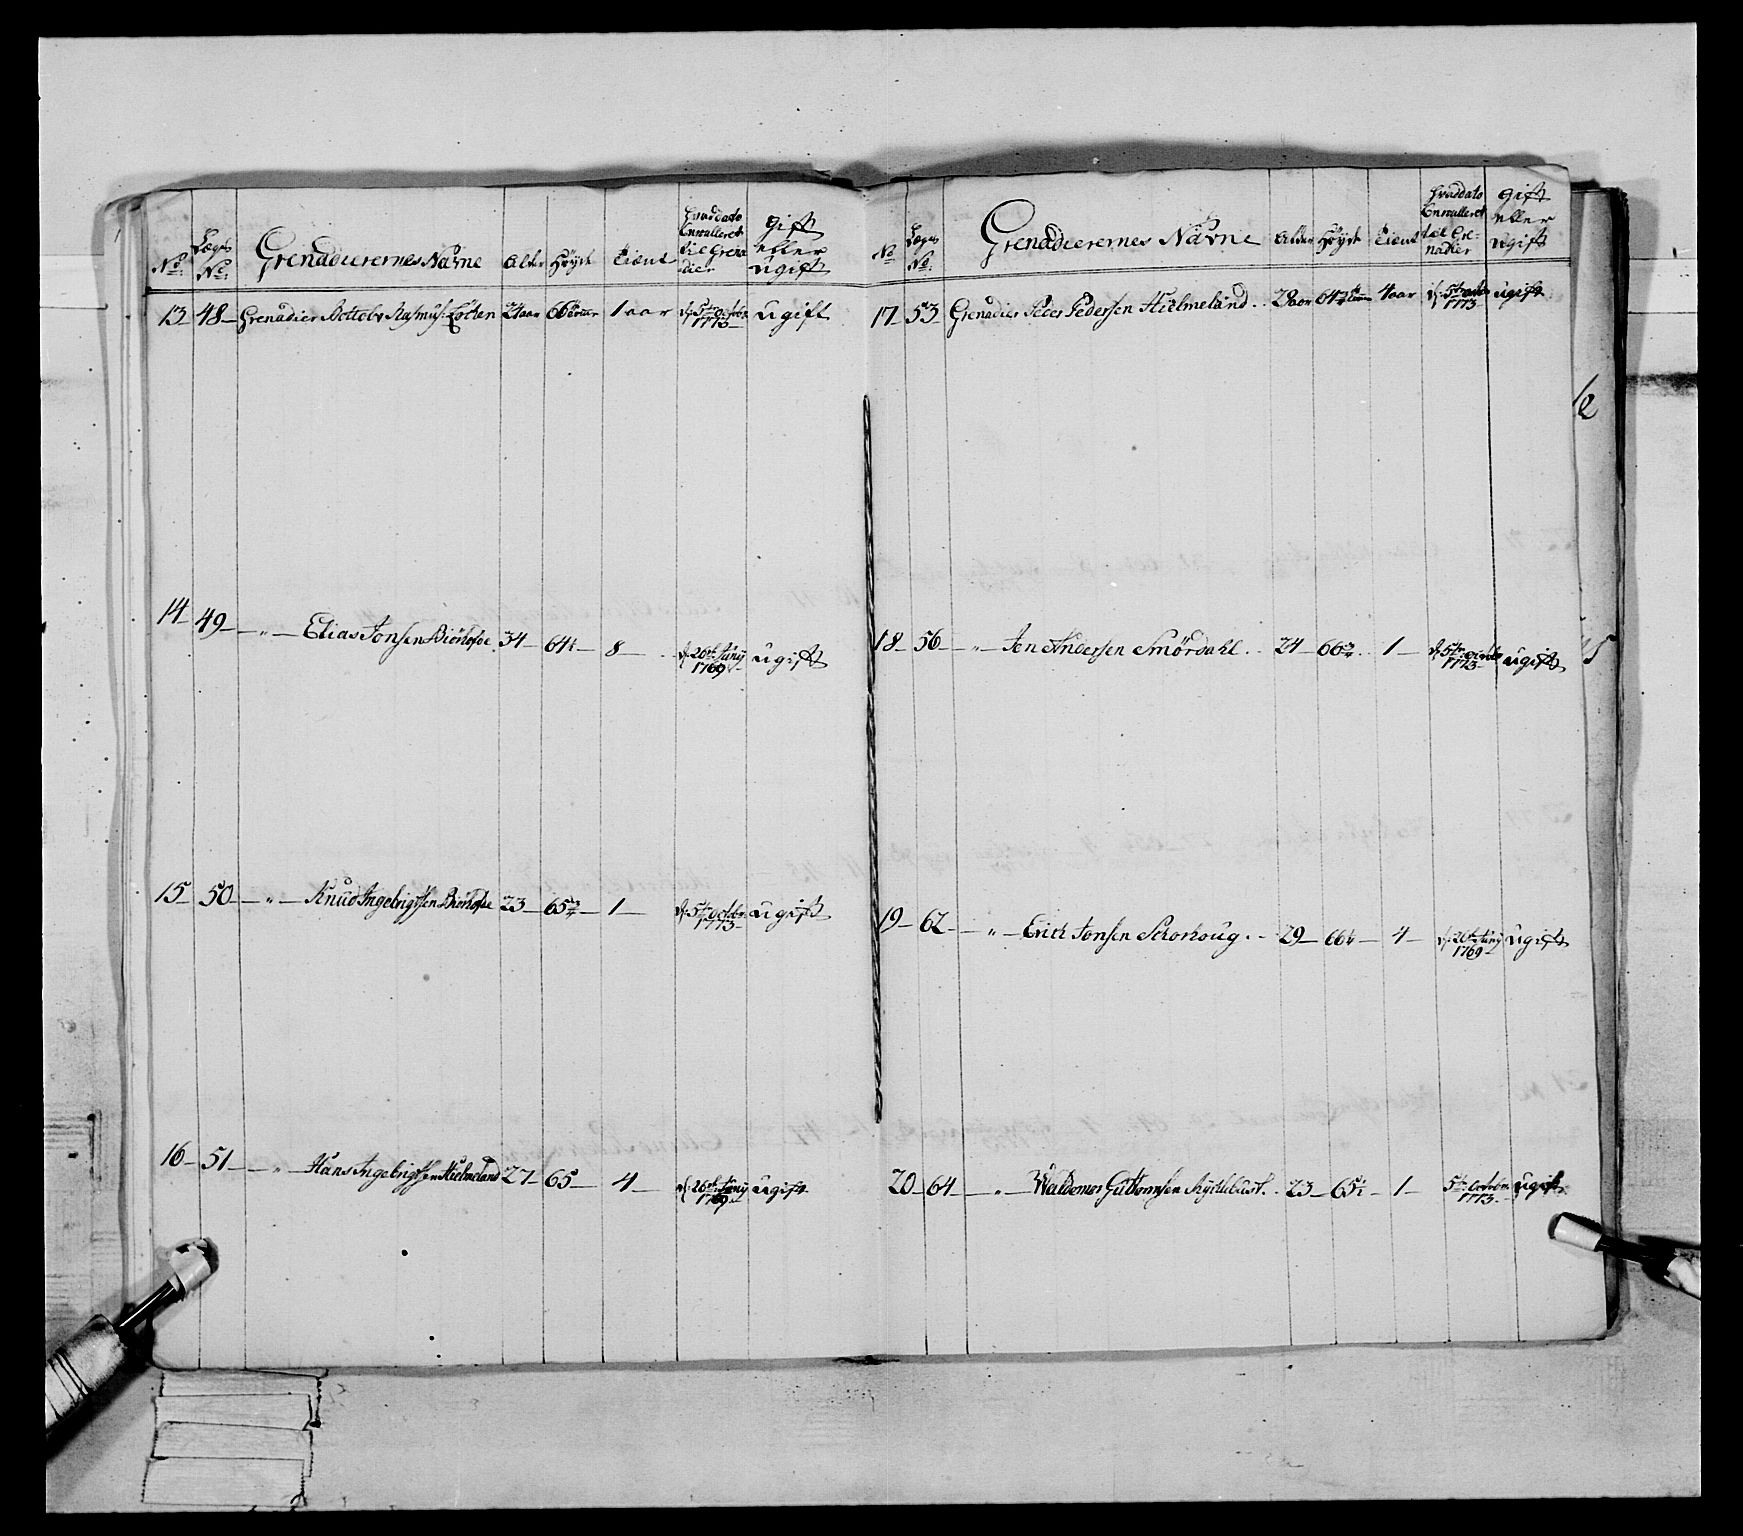 No. Lægs No. Grenadierernes Navne Alder Høyde Tient Hvad dato Enrulleret til Grenadier gift eller ugift
13 48 Grenadier Rasmus 24 aar 1 aar d. 5te octobr 1773 ugift
14 49 " Elias Jonsen 34 64½ 8 d. 26de Juny 1769 ugift
15 50 " Knud Ingebrigtsen 23 65¾ 1 d. 5te octobr 1773 ugift
16 51 " Hans Ingebrigtsen Hielmeland 27 65 4 d. 26de Juny 1769 ugift
No. Lægs No. Grenadierernes Navne Alder Høyde Tient Hvad dato Enrulleret til Grenadier gift eller ugift
17 53 Grenadier Peder Pedersen Hielmeland 28 aar 4 aar d. 5te octobr 1773 ugift
18 56 " Jon Andersen Smördahl 24 66¾ 1 d. 5te octobr 1773 ugift
19 62 " Erich Jonsen 29 66½ 4 d. 26de Juny 1769 ugift
20 64 " Guttormsen 23 65½ 1 5te octobr 1773 ugift